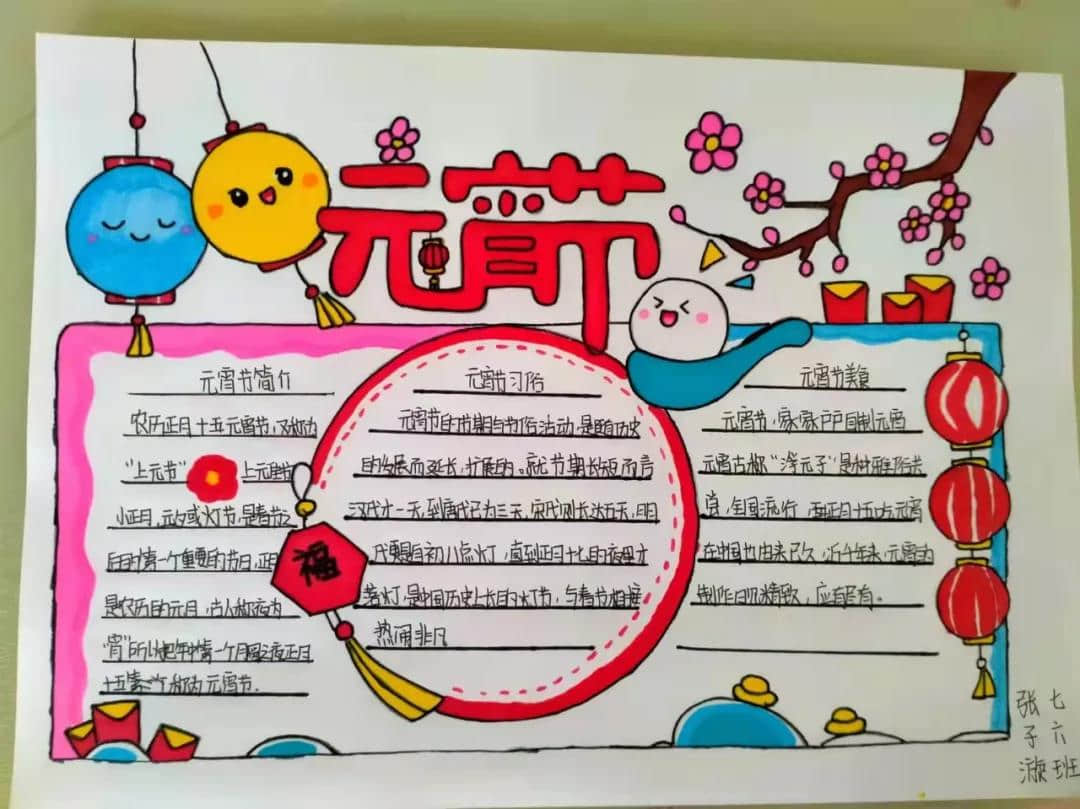 元宵节
元宵节简介
农历正月十五元宵节，又称为
“上元节” 上元佳节
小正月、元夕或灯节，是春节之
后的第一个重要的节日，正月
是农历的元月，古人称夜为
“宵”所以把年中第一个月圆之夜正月
十五 称为元宵节．
福
元宵节习俗
元宵节的节期与节俗活动，是随历史
的发展而延长，扩展的。就节期长短而言
汉代才一天，到唐代已为三天，宋代则长达五天，明
代更是自初八点灯，直到正月十七的夜里才
落灯，是中国历史上长的灯节，与春节相接
热闹非凡
元宵节美食
元宵节，家家户户自制元宵
元宵古称“浮元子”是
全国流行 正月十五吃元宵
在中国也由来已久，近千年来，元宵的
制作日见精致，应有尽有。
七六班
张子漩